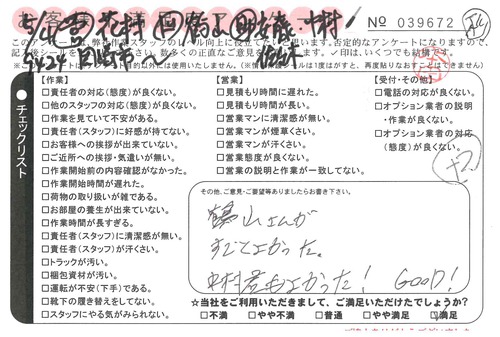 № 039672
チェックリスト
【作業】
□責任者の対応(態度)が良くない。
□他のスタッフの対応(態度)が良くない。
□作業を見ていて不安がある。
□責任者(スタッフ)に好感が持てない。
□お客様への挨拶が出来ていない。
□ご近所への挨拶・気遣いが無い。
□作業開始前の内容確認がなかった。
□作業開始時間が遅れた。
□荷物の取り扱いが雑である。
□お部屋の養生が出来ていない。
□作業時間が長すぎる。
□責任者(スタッフ)に清潔感が無い。
□責任者(スタッフ)が汗くさい。
□トラックが汚い。
□梱包資材が汚い。
□運転が不安(下手)である。
□靴下の履き替えをしてない。
□スタッフにやる気がみられない。
【営業】
□見積もり時間に遅れた。
□見積もり時間が長い。
□営業マンに清潔感が無い。
□営業マンが煙草くさい。
□営業マンが汗くさい。
□営業態度が良くない。
□営業の説明と作業が一致してない。
【受付・その他】
□電話の対応が良くない。
□オプション業者の説明
・作業が良くない。
□オプション業者の対応
(態度)が良くない。
その他、ご意見・ご要望等ありましたらお書き下さい。
鶴山さんが
すごくよかった。
中村君もよかった! GOOD!
☆当社をご利用いただきまして、ご満足いただけたでしょうか?
□不満 □やや不満 □普通 □やや満足 □満足